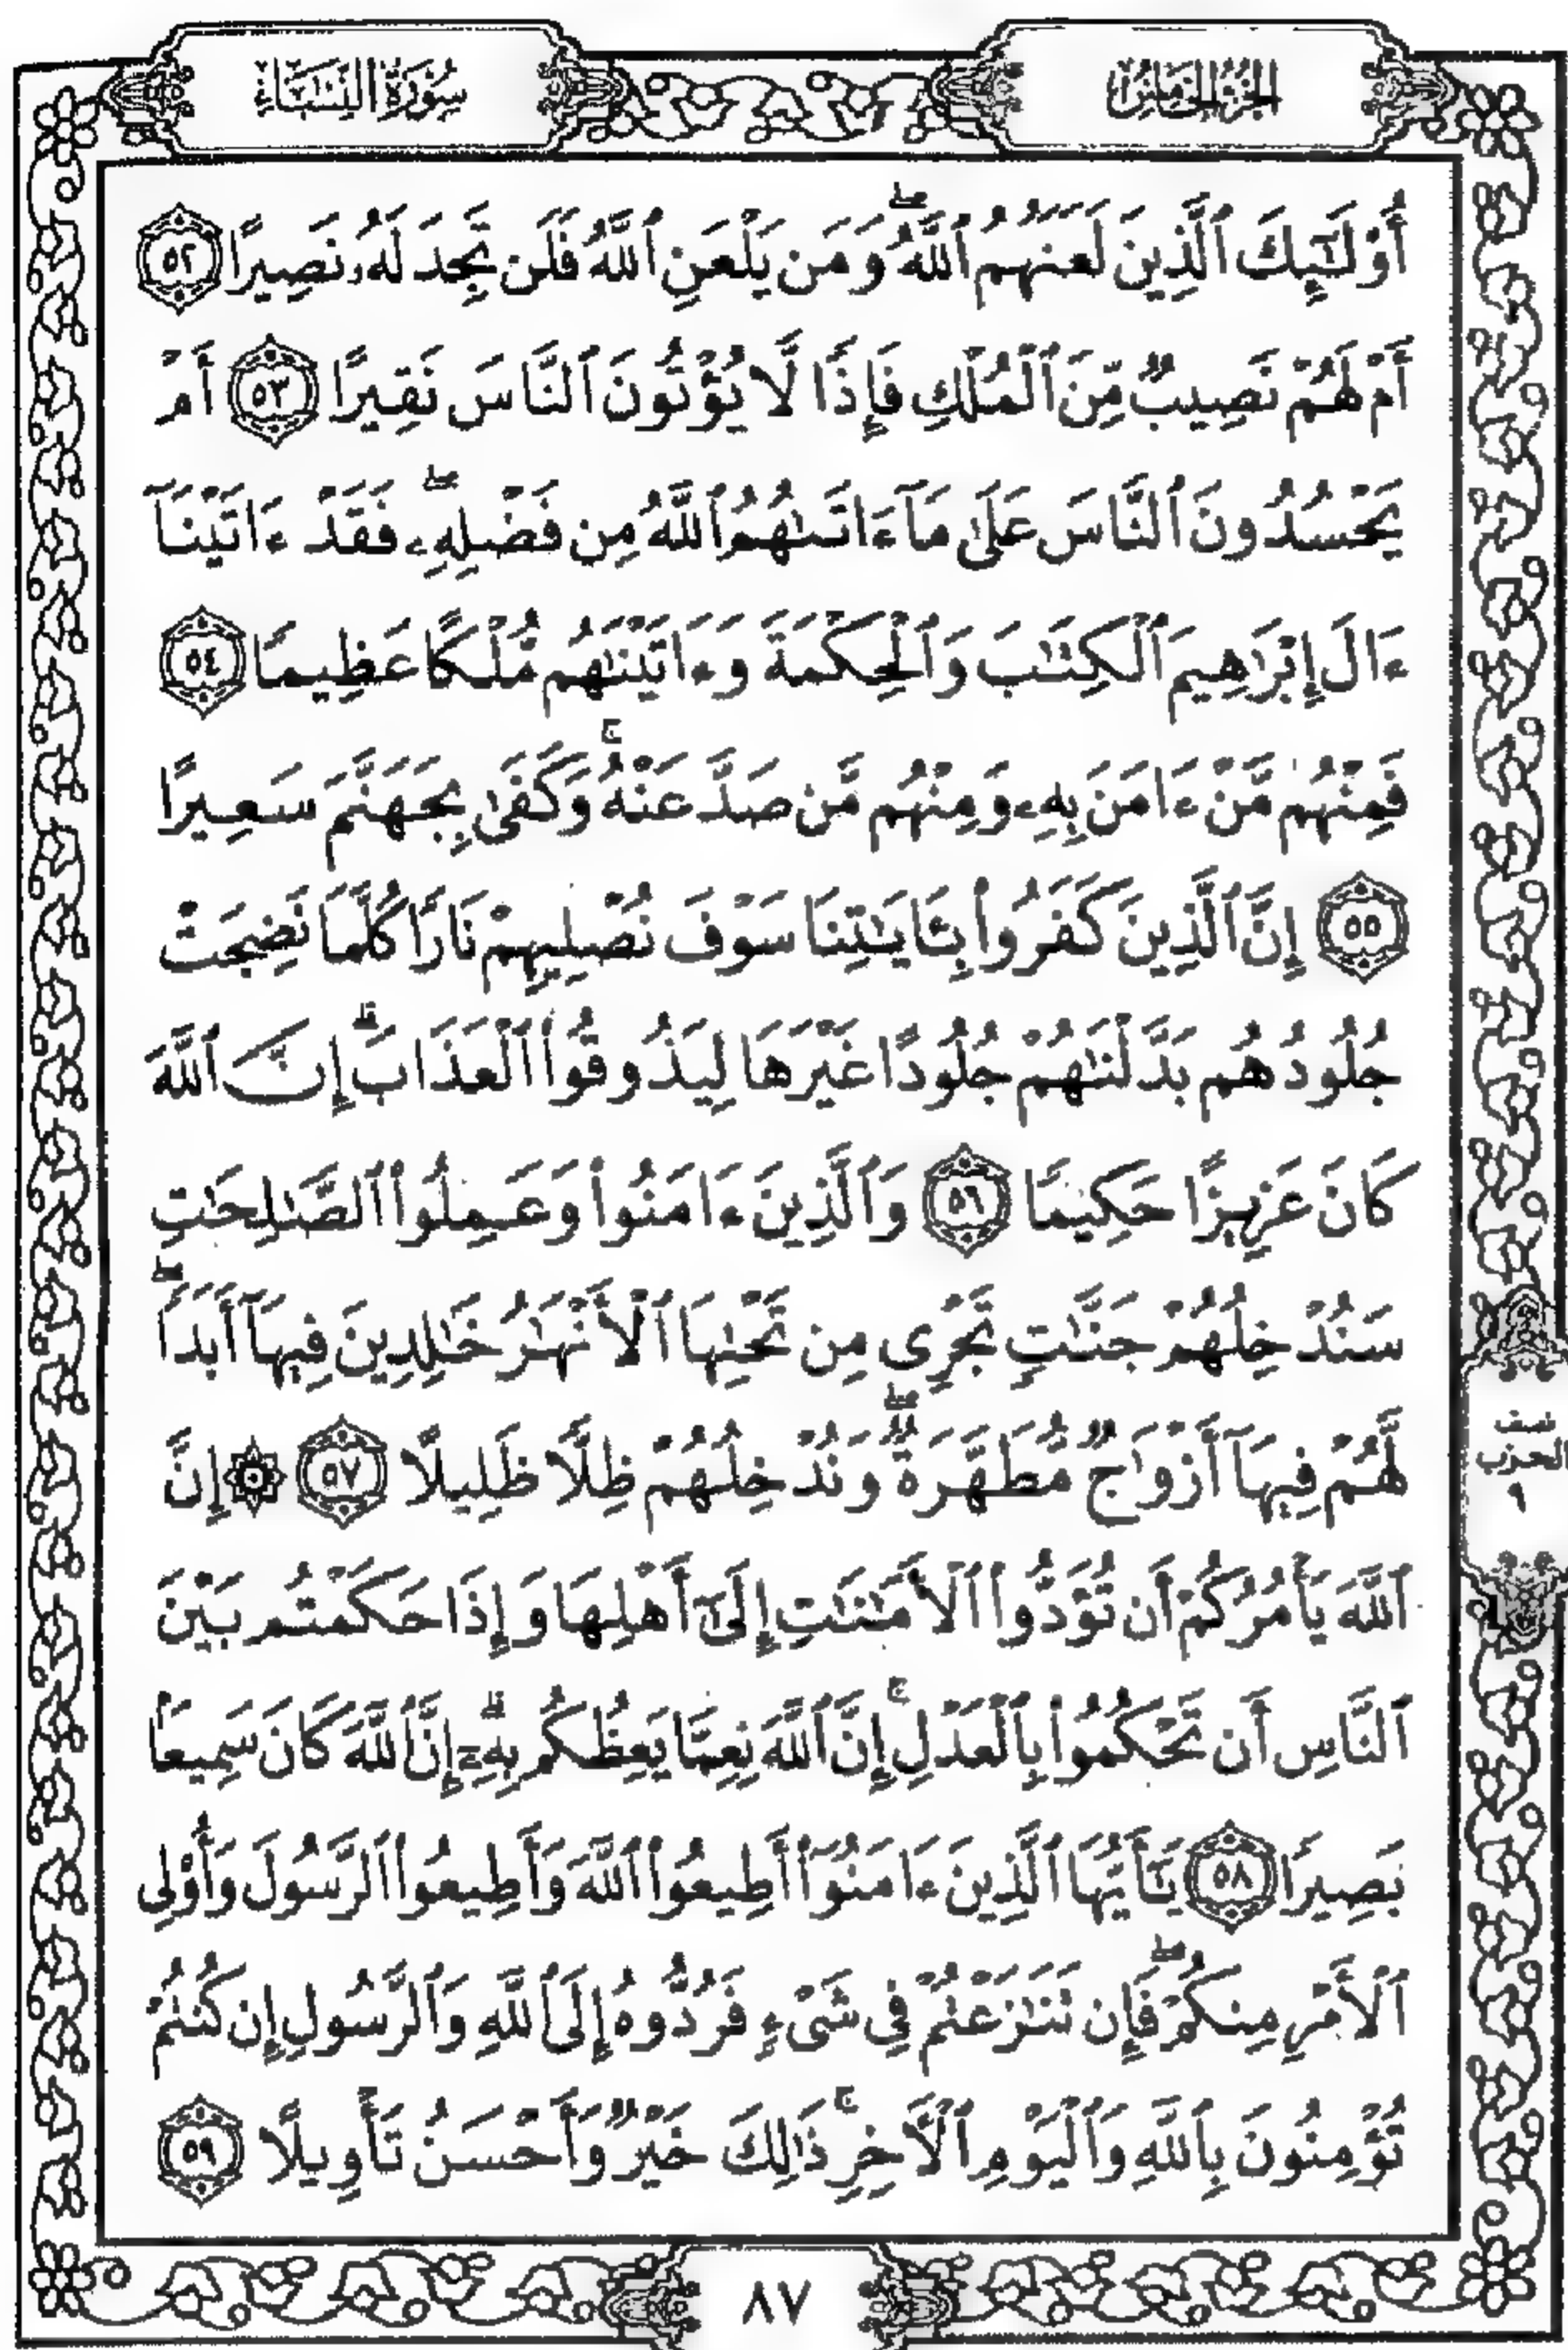 الجزء الخامس
سورة النساء
أُو۟لَـٰٓئِكَ ٱلَّذِينَ لَعَنَهُمُ ٱللَّهُ ۖ وَمَن يَلْعَنِ ٱللَّهُ فَلَن تَجِدَ لَهُۥ نَصِيرًا ٥٢
أَمْ لَهُمْ نَصِيبٌ مِّنَ ٱلْمُلْكِ فَإِذًا لَّا يُؤْتُونَ ٱلنَّاسَ نَقِيرًا ٥٣ أَمْ
يَحْسُدُونَ ٱلنَّاسَ عَلَىٰ مَآ ءَاتَىٰهُمُ ٱللَّهُ مِن فَضْلِهِۦ ۖ فَقَدْ ءَاتَيْنَآ
ءَالَ إِبْرَٰهِيمَ ٱلْكِتَـٰبَ وَٱلْحِكْمَةَ وَءَاتَيْنَـٰهُم مُّلْكًا عَظِيمًا ٥٤
فَمِنْهُم مَّنْ ءَامَنَ بِهِۦ وَمِنْهُم مَّن صَدَّ عَنْهُ ۚ وَكَفَىٰ بِجَهَنَّمَ سَعِيرًا
٥٥ إِنَّ ٱلَّذِينَ كَفَرُوا۟ بِـَٔايَـٰتِنَا سَوْفَ نُصْلِيهِمْ نَارًا كُلَّمَا نَضِجَتْ
جُلُودُهُم بَدَّلْنَـٰهُمْ جُلُودًا غَيْرَهَا لِيَذُوقُوا۟ ٱلْعَذَابَ ۗ إِنَّ ٱللَّهَ
كَانَ عَزِيزًا حَكِيمًا ٥٦ وَٱلَّذِينَ ءَامَنُوا۟ وَعَمِلُوا۟ ٱلصَّـٰلِحَـٰتِ
سَنُدْخِلُهُمْ جَنَّـٰتٍ تَجْرِى مِن تَحْتِهَا ٱلْأَنْهَـٰرُ خَـٰلِدِينَ فِيهَآ أَبَدًا ۖ
لَّهُمْ فِيهَآ أَزْوَٰجٌ مُّطَهَّرَةٌ ۖ وَنُدْخِلُهُمْ ظِلًّا ظَلِيلًا ٥٧ ۞ إِنَّ
ٱللَّهَ يَأْمُرُكُمْ أَن تُؤَدُّوا۟ ٱلْأَمَـٰنَـٰتِ إِلَىٰٓ أَهْلِهَا وَإِذَا حَكَمْتُم بَيْنَ
ٱلنَّاسِ أَن تَحْكُمُوا۟ بِٱلْعَدْلِ ۚ إِنَّ ٱللَّهَ نِعِمَّا يَعِظُكُم بِهِۦٓ ۗ إِنَّ ٱللَّهَ كَانَ سَمِيعًۢا
بَصِيرًا ٥٨ يَـٰٓأَيُّهَا ٱلَّذِينَ ءَامَنُوٓا۟ أَطِيعُوا۟ ٱللَّهَ وَأَطِيعُوا۟ ٱلرَّسُولَ وَأُو۟لِى
ٱلْأَمْرِ مِنكُمْ ۖ فَإِن تَنَـٰزَعْتُمْ فِى شَىْءٍ فَرُدُّوهُ إِلَى ٱللَّهِ وَٱلرَّسُولِ إِن كُنتُمْ
تُؤْمِنُونَ بِٱللَّهِ وَٱلْيَوْمِ ٱلْـَٔاخِرِ ۚ ذَٰلِكَ خَيْرٌ وَأَحْسَنُ تَأْوِيلًا ٥٩
نصف
الحزب
٩
٨٧